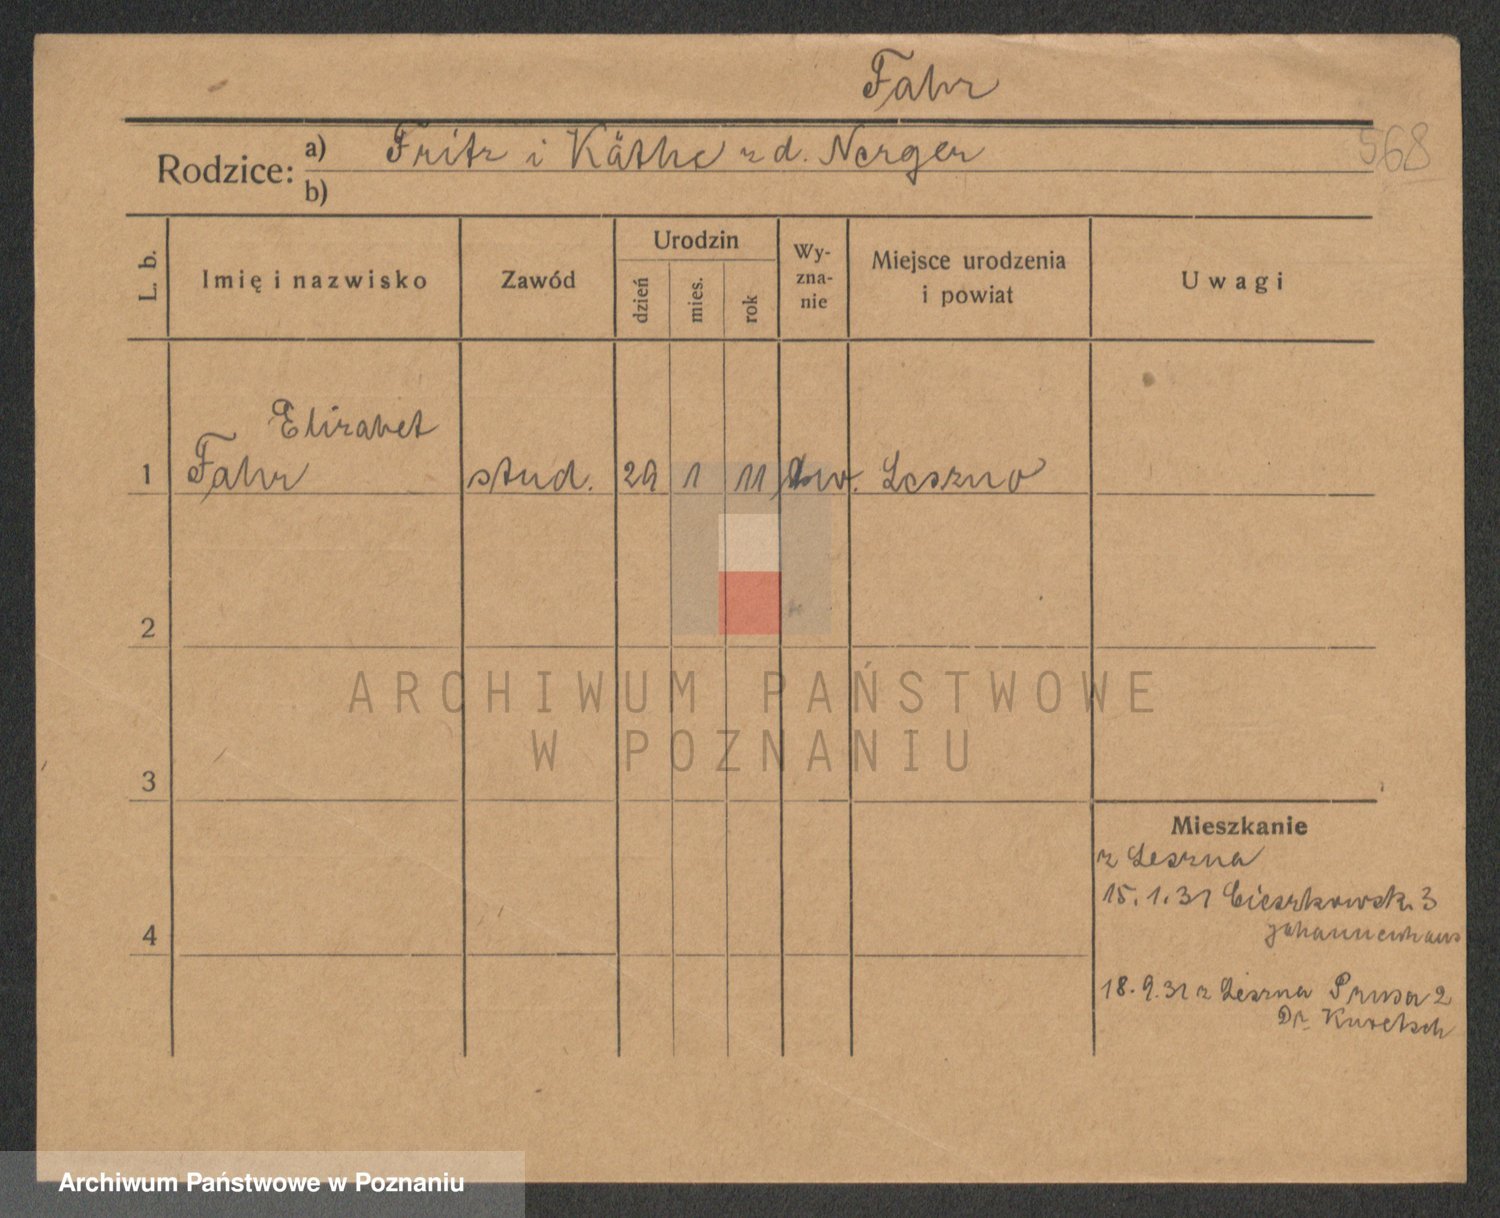 Fahr
568
Rodzice: a) Fritz i Käthe z d. Nerger
b)
L. b.
Imię i nazwisko
Zawód
Urodzin
dzień
mies.
rok
Wy-
zna-
nie
Miejsce urodzenia
i powiat
Uwagi
Elizabet
1 Fahr stud. 29 1 11 ew. Leszno
2
3
4
Mieszkanie
z Leszna
15.1.31 Cieszkowsk. 3
Johannenhaus
18.9.31 z Leszna Prusa 2
Dr.
ARCHIWUM PAŃSTWOWE
W POZNANIU
Archiwum Państwowe w Poznaniu